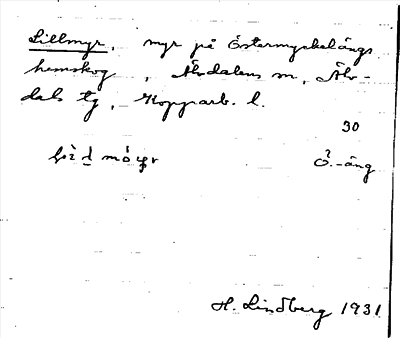 Lillmyr, myr på Östermyckelängs
hemskog, Älvdalens sn, Älv-
dals tg, Kopparb. l.
30
Ö.-äng
H. Lindberg 1931